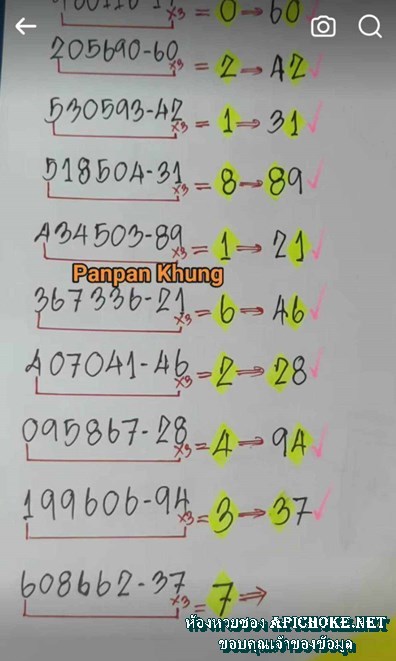 x3 = 0→60
205690-60 x3 = 2→42
530593-42 x3 = 1→31
518504-31 x3 = 8→89
434503-89 x3 = 1→21
Panpan Khung
367336-21 x3 = 6→46
407041-46 x3 = 2→28
095867-28 x3 = 4→94
199606-94 x3 = 3→37
608662-37 x3 = 7⇒
ห้องหวยซอง APICHOKE.NET
ขอบคุณเจ้าของข้อมูล